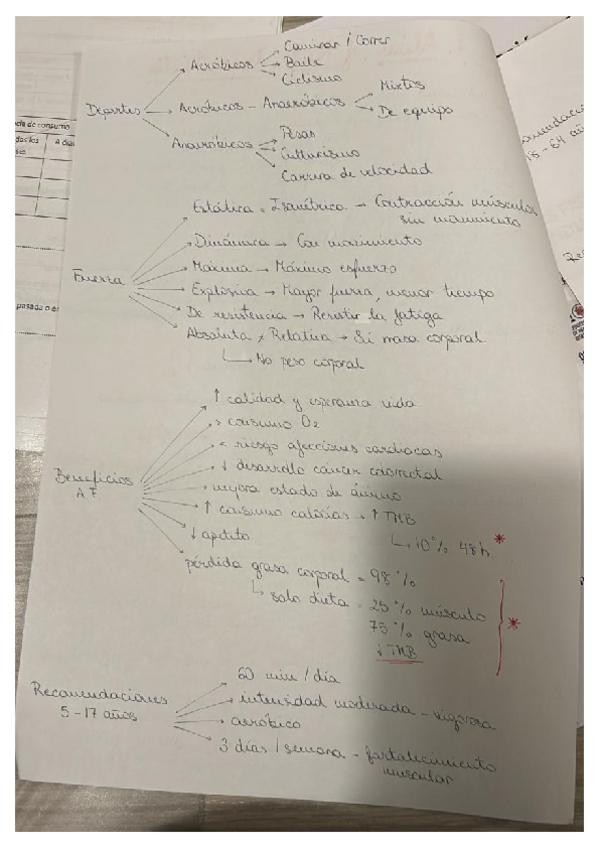 Caminar / Correr
Aeróbicos Baile
Ciclismo
Deportes Aeróbicos - Anaeróbicos Mixtos
De equipo
Pesas
Anaeróbicos Culturismo
Carrera de velocidad
Estática o Isométrica → Contracción músculos
sin movimiento
Dinámica → Con movimiento
Fuerza Máxima → Máximo esfuerzo
Explosiva → Mayor fuerza, menor tiempo
De resistencia → Resistir la fatiga
Absoluta y Relativa → Sí masa corporal
→ No peso corporal
↑ calidad y esperanza vida
> consumo O2
< riesgo afecciones cardiacas
↓ desarrollo cáncer colorrectal
Beneficios mejora estado de ánimo
AF
↑ consumo calorías → ↑ TMB
10% 48h *
↓ apetito
pérdida grasa corporal = 98%
solo dieta = 25% músculo *
75% grasa
↓ TMB
60 min / día
Recomendaciones intensidad moderada - vigorosa
5-17 años aeróbico
3 días / semana - fortalecimiento
muscular
de consumo
pasada o
18 - 64